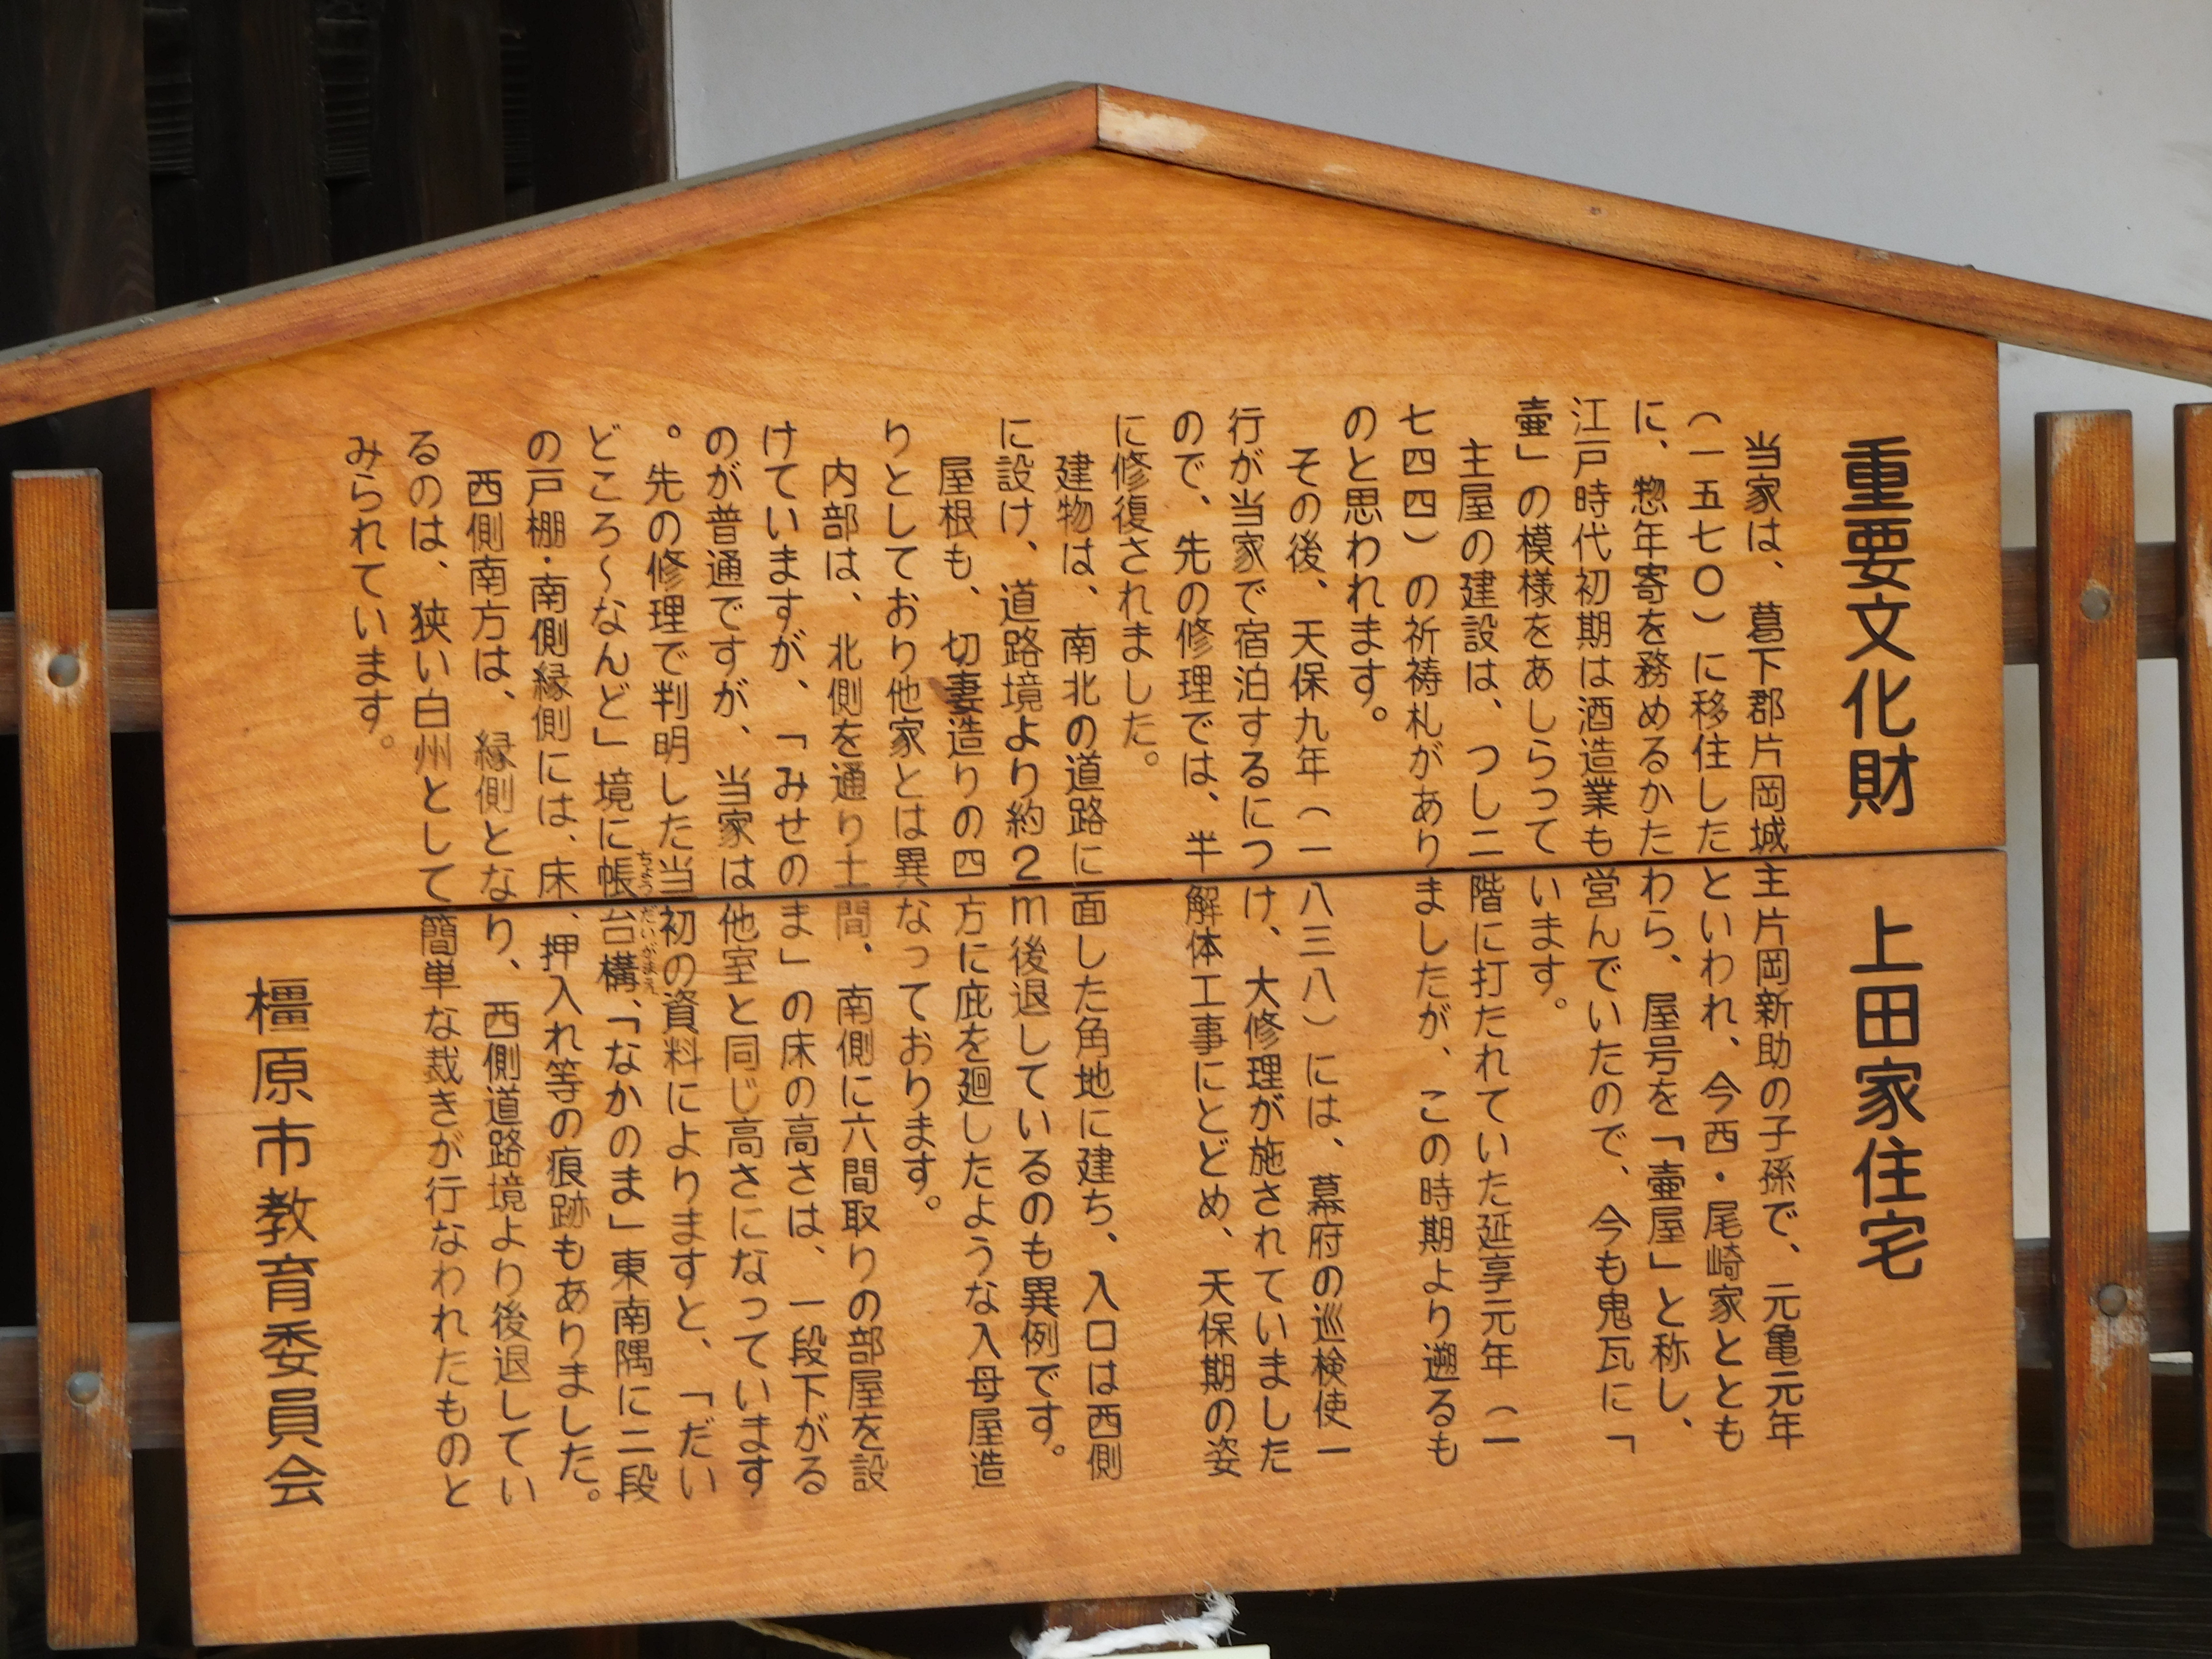 重要文化財　上田家住宅
当家は、葛下郡片岡城主片岡新助の子孫で、元亀元年
（一五七〇）に移住したといわれ、今西・尾崎家ととも
に、惣年寄を務めるかたわら、屋号を「壷屋」と称し、
江戸時代初期は酒造業も営んでいたので、今も鬼瓦に「
壷」の模様をあしらっています。
主屋の建設は、つし二階に打たれていた延享元年（一
七四四）の祈祷札がありましたが、この時期より遡るも
のと思われます。
その後、天保九年（一八三八）には、幕府の巡検使一
行が当家で宿泊するにつけ、大修理が施されていました
ので、先の修理では、半解体工事にとどめ、天保期の姿
に修復されました。
建物は、南北の道路に面した角地に建ち、入口は西側
に設け、道路境より約2m後退しているのも異例です。
屋根も、切妻造りの四方に庇を廻したような入母屋造
りとしており他家とは異なっております。
内部は、北側を通り土間、南側に六間取りの部屋を設
けていますが、「みせのま」の床の高さは、一段下がる
のが普通ですが、当家は他室と同じ高さになっています
。先の修理で判明した当初の資料によりますと、「だい
どころ〜なんど」境に帳台構、「なかのま」東南隅に二段
ちょうだいがまえ
の戸棚・南側縁側には、床、押入れ等の痕跡もありました。
西側南方は、縁側となり、西側道路境より後退してい
るのは、狭い白州として簡単な裁きが行なわれたものと
みられています。
橿原市教育委員会